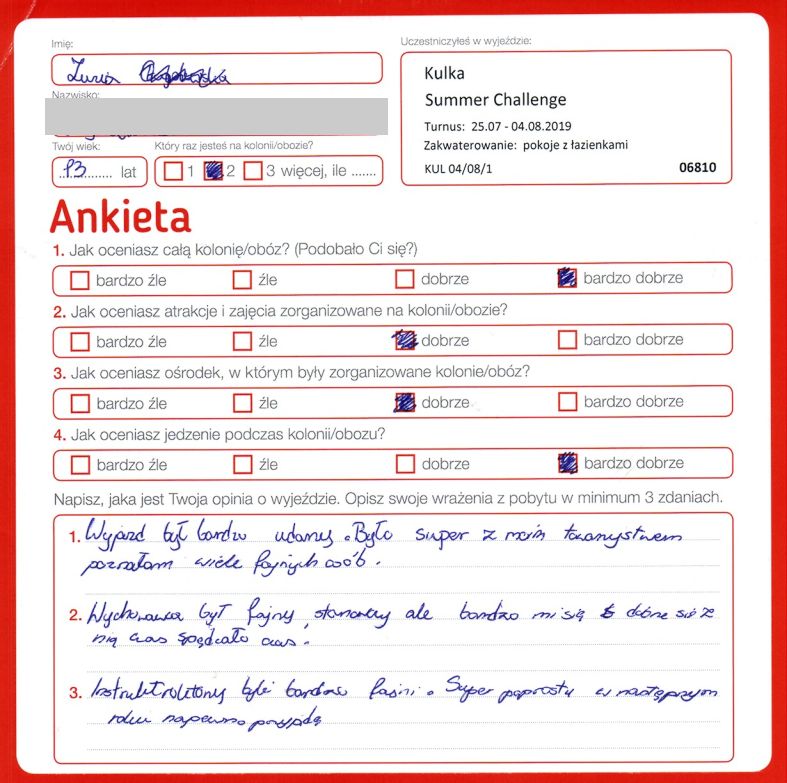 Imię:
Uczestniczyłeś w wyjeździe:
Zuzia
Kulka
Summer Challenge
Nazwisko:
Turnus: 25.07 - 04.08.2019
Zakwaterowanie: pokoje z łazienkami
KUL 04/08/1 06810
Twój wiek: Który raz jesteś na kolonii/obozie?
13 lat 1 2 3 więcej, ile .......
Ankieta
1. Jak oceniasz całą kolonię/obóz? (Podobało Ci się?)
bardzo źle źle dobrze bardzo dobrze
2. Jak oceniasz atrakcje i zajęcia zorganizowane na kolonii/obozie?
bardzo źle źle dobrze bardzo dobrze
3. Jak oceniasz ośrodek, w którym były zorganizowane kolonie/obóz?
bardzo źle źle dobrze bardzo dobrze
4. Jak oceniasz jedzenie podczas kolonii/obozu?
bardzo źle źle dobrze bardzo dobrze
Napisz, jaka jest Twoja opinia o wyjeździe. Opisz swoje wrażenia z pobytu w minimum 3 zdaniach.
1. Wyjazd był bardzo udany. Było super z moim towarzystwem
poznałam wiele fajnych osób.
2. Wychowawca był fajny, stanowczy ale bardzo mi się dobrze się z
nią czas spędzało czas.
3. byli bardzo fajni. Super poprostu w następnym
roku napewno przyjadę